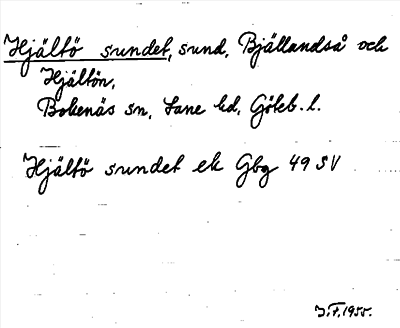 Hjältö sundet, sund, Bjällandså och
Hjältön,
Bokenäs sn, Lane hd, Göteb. l.
Hjältö sundet ek Gbg 49 SV
J.F. 1955.